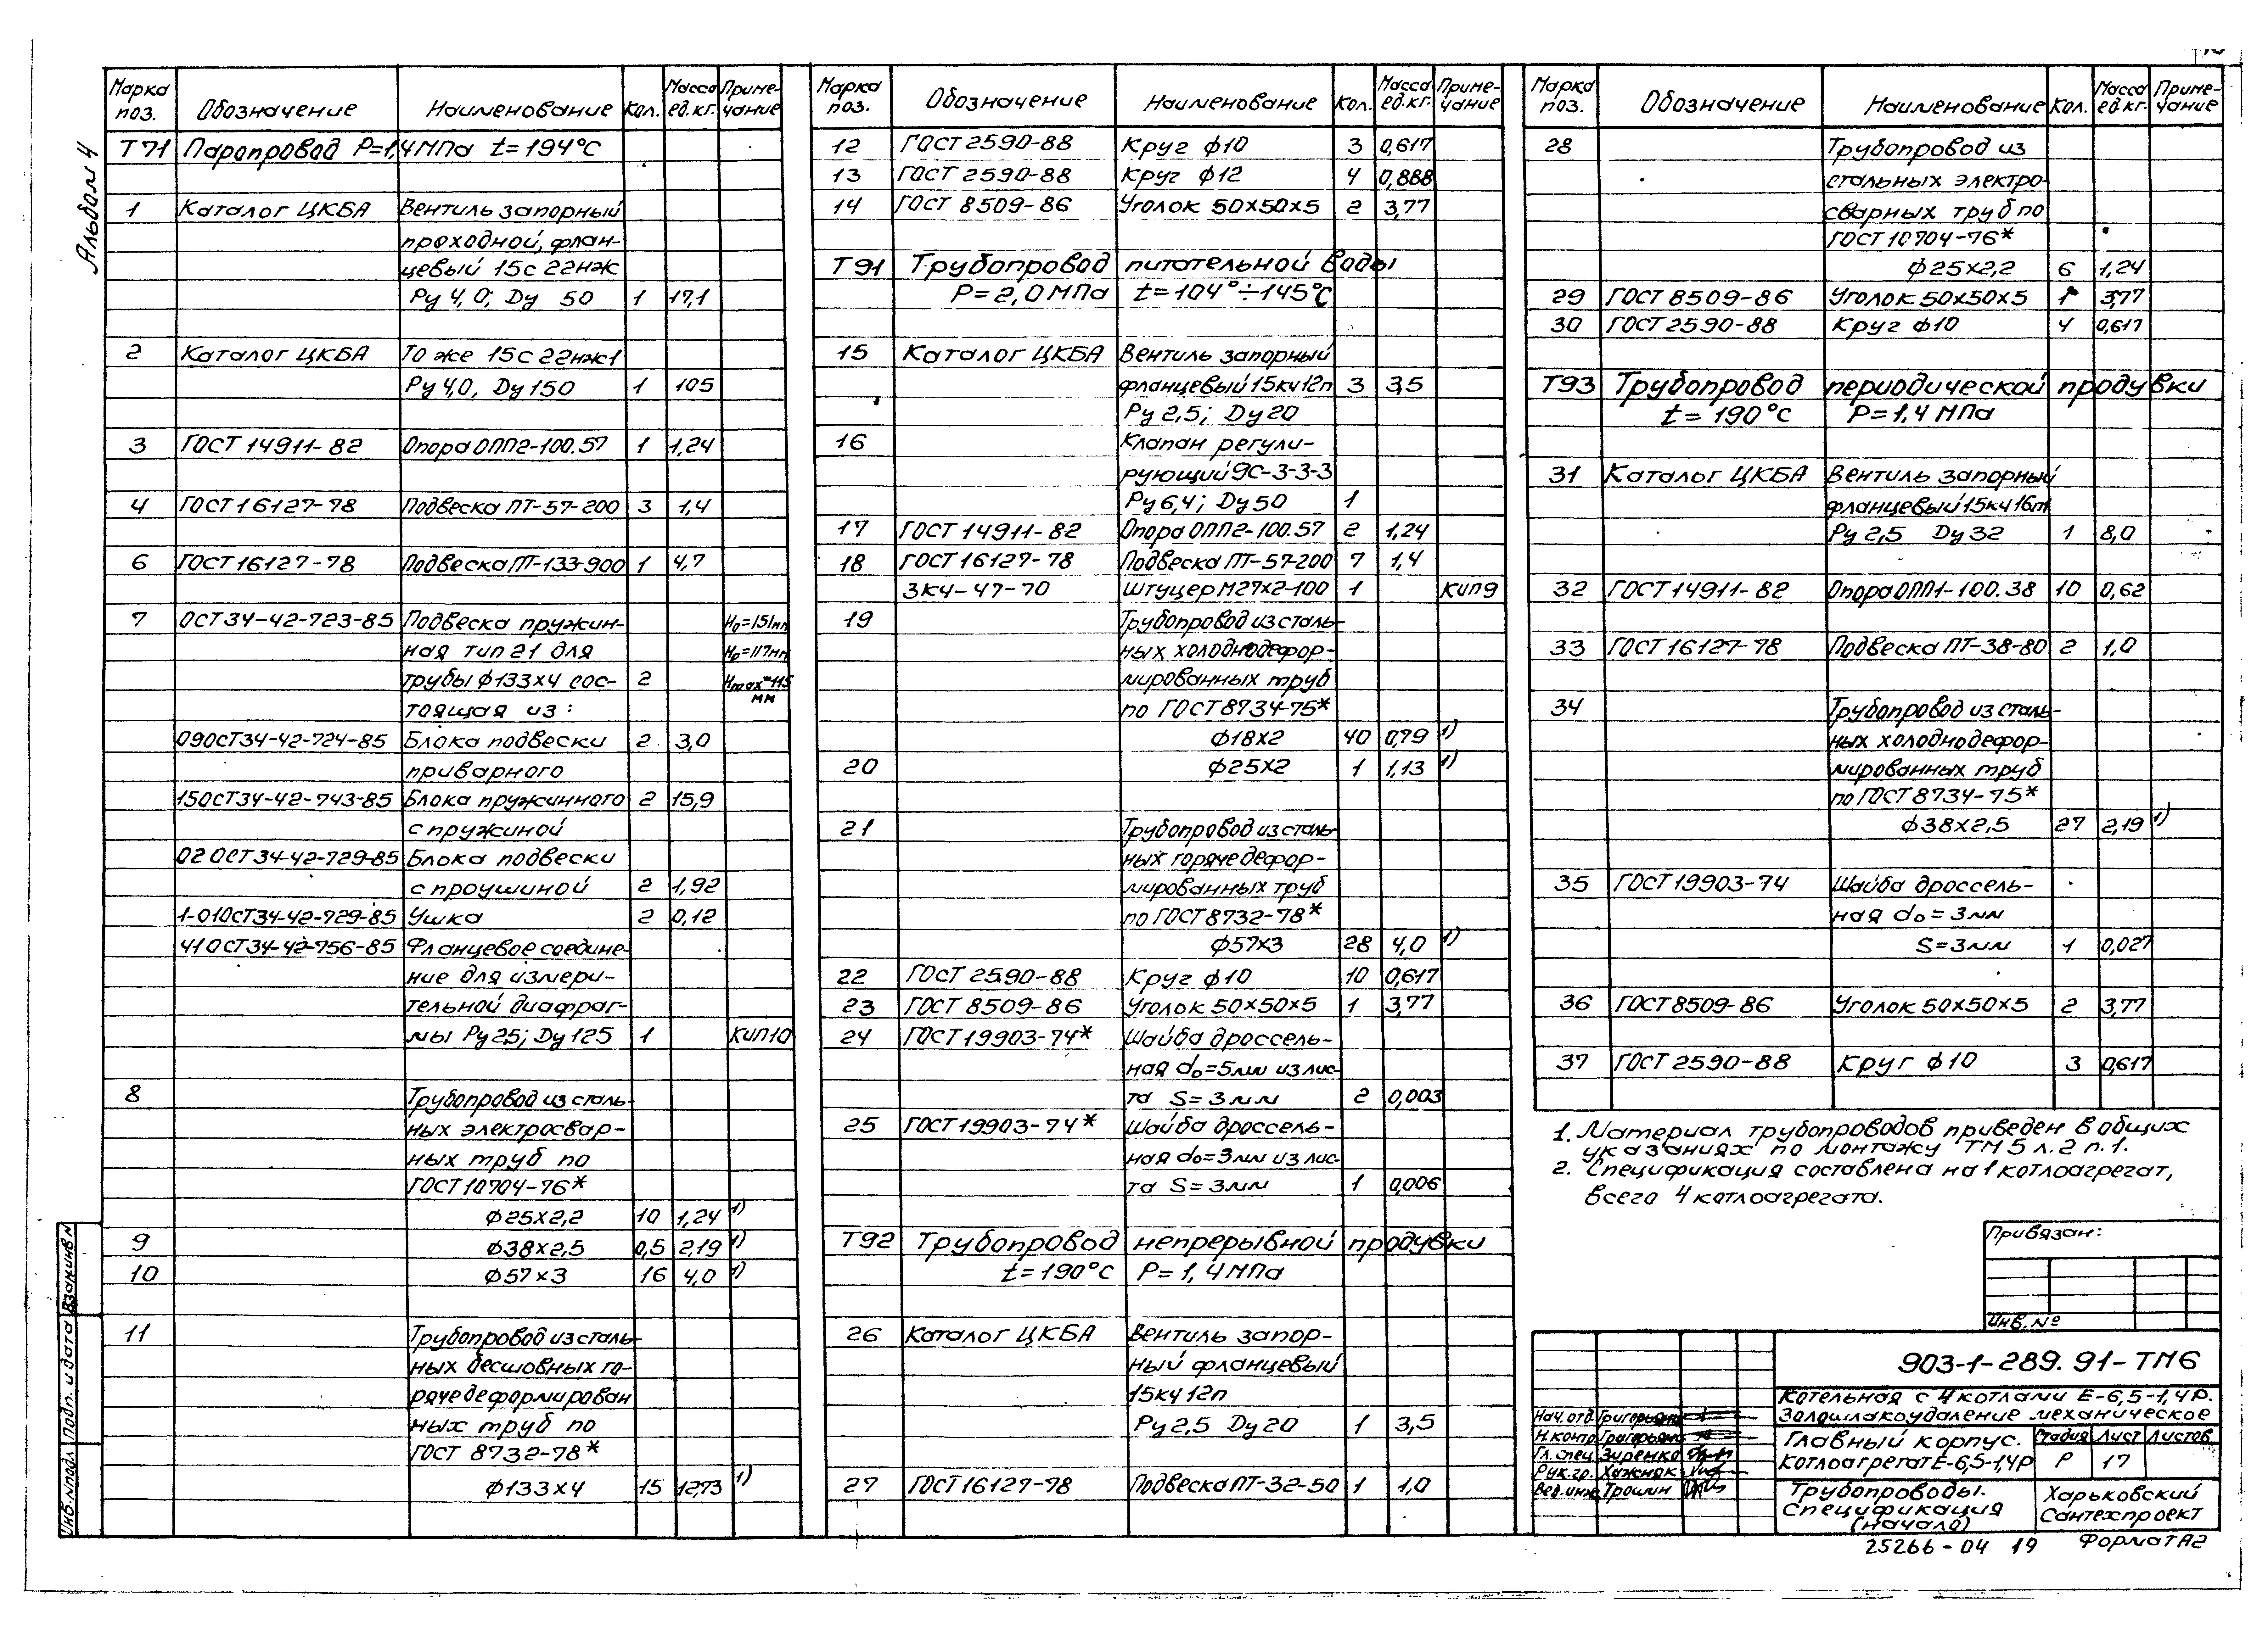 Альбом 4
Марка поз. Обозначение Наименование Кол. Масса ед.кг. Примечание
Т71 Паропровод Р=1,4МПа t=194°С
1 Каталог ЦКБА Вентиль запорный
проходной, флан-
цевый 15с22нж
Ру 4,0; Ду 50 1 17,1
2 Каталог ЦКБА То же 15с22нж1
Ру 4,0, Ду 150 1 105
3 ГОСТ 14911-82 Опора ОПП2-100.57 1 1,24
4 ГОСТ 16127-78 Подвеска ПТ-57-200 3 1,4
6 ГОСТ 16127-78 Подвеска ПТ-133-900 1 4,7
7 ОСТ34-42-723-85 Подвеска пружин- Н₀=151мм
ная тип 21 для Нр=117мм
трубы ф133х4 сос- 2 Нmax=115
тоящая из: мм
09ОСТ34-42-724-85 Блока подвески 2 3,0
приварного
15ОСТ34-42-743-85 Блока пружинного 2 15,9
с пружиной
02 ОСТ34-42-729-85 Блока подвески
с проушиной 2 1,92
1-01ОСТ34-42-729-85 Ушка 2 0,12
41ОСТ34-42-756-85 Фланцевое соедине-
ние для измери-
тельной диафраг-
мы Ру25; Ду125 1 КИП10
8 Трубопровод из сталь-
ных электросвар-
ных труб по
ГОСТ 10704-76*
ф25х2,2 10 1,24 1)
9 ф38х2,5 0,5 2,19 1)
10 ф57х3 16 4,0 1)
11 Трубопровод из сталь-
ных бесшовных го-
рячедеформирован
ных труб по
ГОСТ 8732-78*
ф133х4 15 12,73 1)
Марка поз. Обозначение Наименование Кол. Масса ед.кг. Примечание
12 ГОСТ 2590-88 Круг ф10 3 0,617
13 ГОСТ 2590-88 Круг ф12 4 0,888
14 ГОСТ 8509-86 Уголок 50х50х5 2 3,77
Т91 Трубопровод питательной воды
Р=2,0МПа t=104°÷145°С
15 Каталог ЦКБА Вентиль запорный
фланцевый 15кч12п 3 3,5
Ру 2,5; Ду 20
16 Клапан регули-
рующий 9С-3-3-3
Ру 6,4; Ду 50 1
17 ГОСТ 14911-82 Опора ОПП2-100.57 2 1,24
18 ГОСТ 16127-78 Подвеска ПТ-57-200 7 1,4
ЗК4-47-70 Штуцер М27х2-100 1 КИП9
19 Трубопровод из сталь-
ных холоднодефор-
мированных труб
по ГОСТ 8734-75*
ф18х2 40 0,79 1)
20 ф25х2 1 1,13 1)
21 Трубопровод из сталь-
ных горячедефор-
мированных труб
по ГОСТ 8732-78*
ф57х3 28 4,0 1)
22 ГОСТ 2590-88 Круг ф10 10 0,617
23 ГОСТ 8509-86 Уголок 50х50х5 1 3,77
24 ГОСТ 19903-74* Шайба дроссель-
ная d₀=5мм из лис-
та S=3мм 2 0,003
25 ГОСТ 19903-74* Шайба дроссель-
ная d₀=3мм из лис-
та S=3мм 1 0,006
Т92 Трубопровод непрерывной продувки
t=190°С Р=1,4МПа
26 Каталог ЦКБА Вентиль запор-
ный фланцевый
15кч12п
Ру 2,5 Ду 20 1 3,5
27 ГОСТ 16127-78 Подвеска ПТ-32-50 1 1,0
Марка поз. Обозначение Наименование Кол. Масса ед.кг. Примечание
28 Трубопровод из
стальных электро-
сварных труб по
ГОСТ 10704-76*
ф25х2,2 6 1,24
29 ГОСТ 8509-86 Уголок 50х50х5 1 3,77
30 ГОСТ 2590-88 Круг ф10 4 0,617
Т93 Трубопровод периодической продувки
t=190°С Р=1,4МПа
31 Каталог ЦКБА Вентиль запорный
фланцевый 15кч16п
Ру 2,5 Ду 32 1 8,0
32 ГОСТ 14911-82 Опора ОПП1-100.38 10 0,62
33 ГОСТ 16127-78 Подвеска ПТ-38-80 2 1,0
34 Трубопровод из сталь-
ных холоднодефор-
мированных труб
по ГОСТ 8734-75*
ф38х2,5 27 2,19 1)
35 ГОСТ 19903-74 Шайба дроссель-
ная d₀=3мм
S=3мм 1 0,027
36 ГОСТ 8509-86 Уголок 50х50х5 2 3,77
37 ГОСТ 2590-88 Круг ф10 3 0,617
1. Материал трубопроводов приведен в общих
указаниях по монтажу ТМ5 л.2 п.1.
2. Спецификация составлена на 1 котлоагрегат,
всего 4 котлоагрегата.
Привязан:
Инв.№
903-1-289.91-ТМ6
Котельная с 4 котлами Е-6,5-1,4Р.
Золошлакоудаление механическое
Нач.отд. Григорьянц
Н.контр. Григорьянц
Гл.спец. Зиренко
Рук.гр. Хажнюк
Вед.инж. Трошин
Главный корпус.
Котлоагрегат Е-6,5-1,4Р
Стадия Лист Листов
Р 17
Трубопроводы.
Спецификация
(начало)
Харьковский
Сантехпроект
25266-04 19 Формат А2
Инв.№подл. Подп. и дата Взам.инв.№